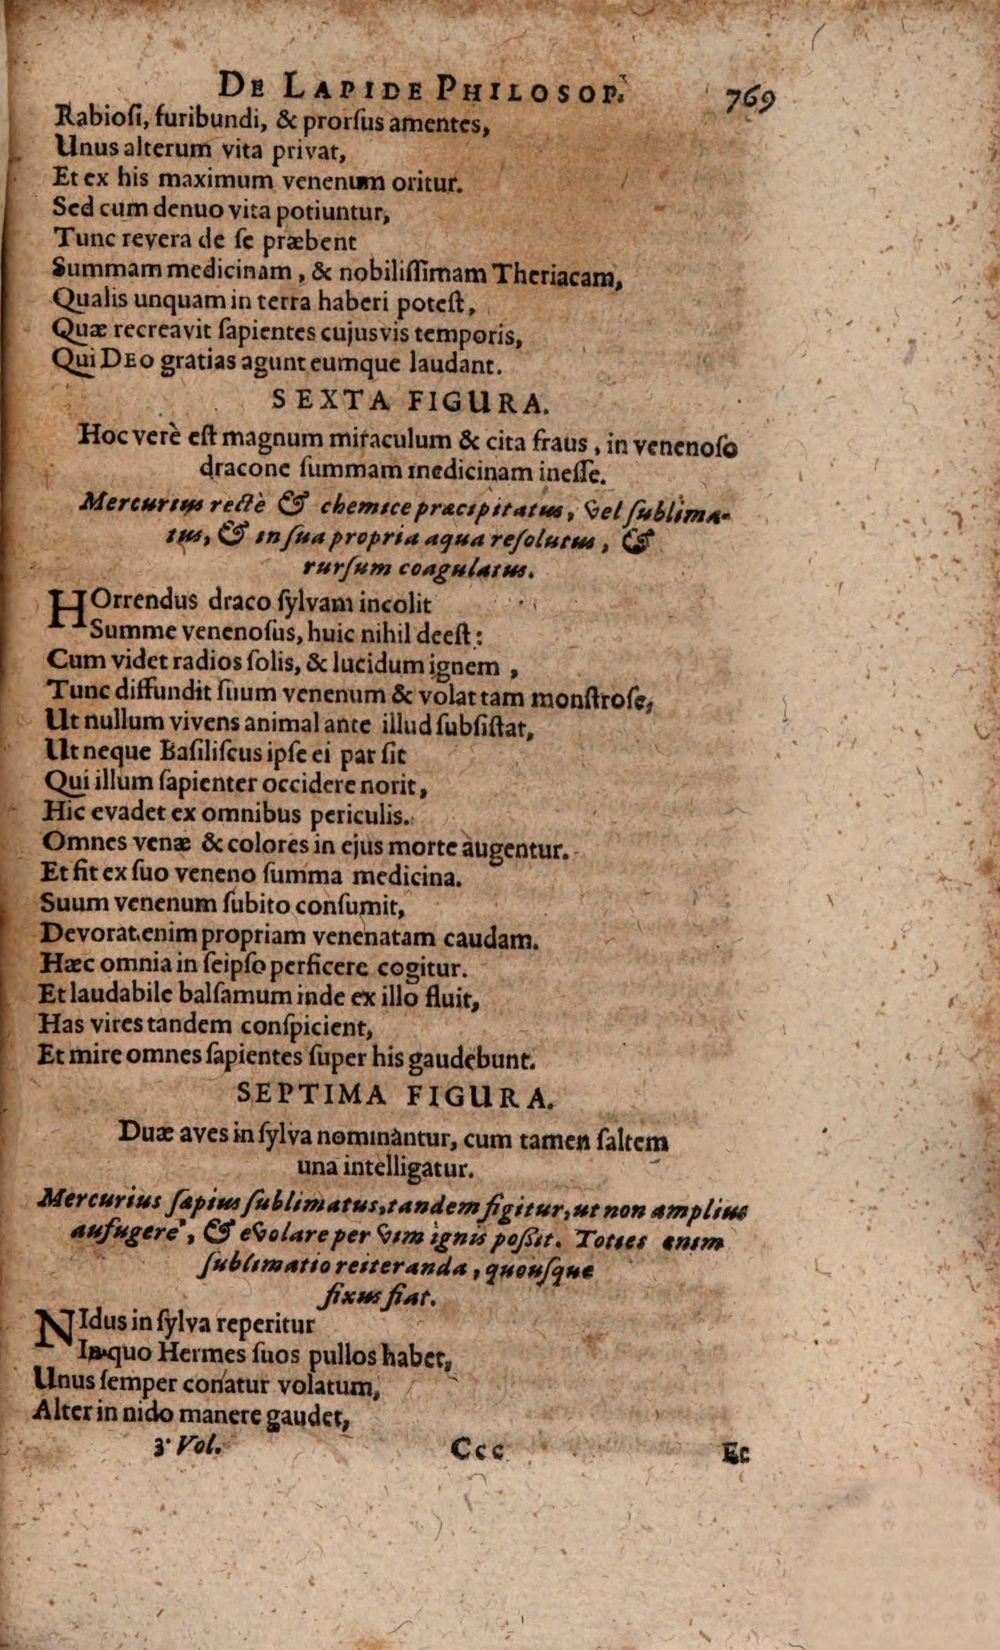 DE LAPIDE PHILOSOP. 769
Rabioſi, furibundi, & prorſus amentes,
Unus alterum vita privat,
Et ex his maximum venenum oritur.
Sed cum denuo vita potiuntur,
Tunc revera de ſe præbent
Summam medicinam, & nobiliſſimam Theriacam,
Qualis unquam in terra haberi poteſt,
Quæ recreavit ſapientes cujusvis temporis,
Qui DEO gratias agunt eumque laudant.
SEXTA FIGURA.
Hoc verè eſt magnum miraculum & cita fraus, in venenoſo
dracone ſummam medicinam ineſſe.
Mercurius rectè & chemice præcipitatus, vel ſublima-
tus, & in ſua propria aqua reſolutus, &
rurſum coagulatus.
HOrrendus draco ſylvam incolit
Summe venenoſus, huic nihil deeſt:
Cum videt radios ſolis, & lucidum ignem,
Tunc diffundit ſuum venenum & volat tam monſtroſe,
Ut nullum vivens animal ante illud ſubſiſtat,
Ut neque Baſiliſcus ipſe ei par ſit
Qui illum ſapienter occidere norit,
Hic evadet ex omnibus periculis.
Omnes venæ & colores in ejus morte augentur.
Et fit ex ſuo veneno ſumma medicina.
Suum venenum ſubito conſumit,
Devorat enim propriam venenatam caudam.
Hæc omnia in ſeipſo perficere cogitur.
Et laudabile balſamum inde ex illo fluit,
Has vires tandem conſpicient,
Et mire omnes ſapientes ſuper his gaudebunt.
SEPTIMA FIGURA.
Duæ aves in ſylva nominantur, cum tamen ſaltem
una intelligatur.
Mercurius ſæpius ſublimatus, tandem figitur, ut non amplius
aufugere, & evolare per vim ignis poſſit. Toties enim
ſublimatio reiteranda, quouſque
fixus fiat.
NIdus in ſylva reperitur
In quo Hermes ſuos pullos habet,
Unus ſemper conatur volatum,
Alter in nido manere gaudet,
3 Vol. Ccc Ec